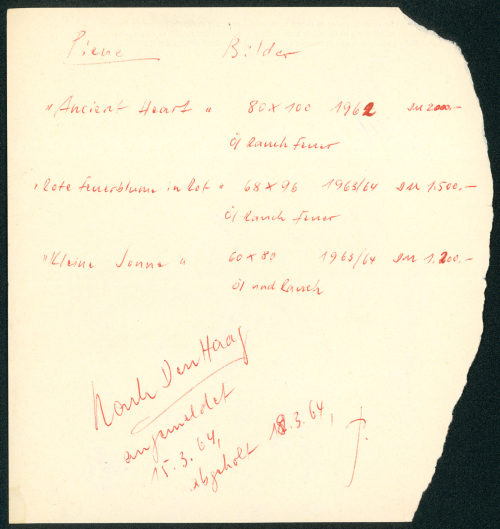 Piene Bilder
"Ancient Heart" 80 x 100 1962 DM 2000.-
Öl Rauch Feuer
"Rote Feuerblume in Rot" 68 x 96 1963/64 DM 1.500.-
Öl Rauch Feuer
"Kleine Sonne" 60 x 80 1963/64 DM 1.200.-
Öl und Rauch
Nach Den Haag
angemeldet
15.3.64,
abgeholt 18.3.64,